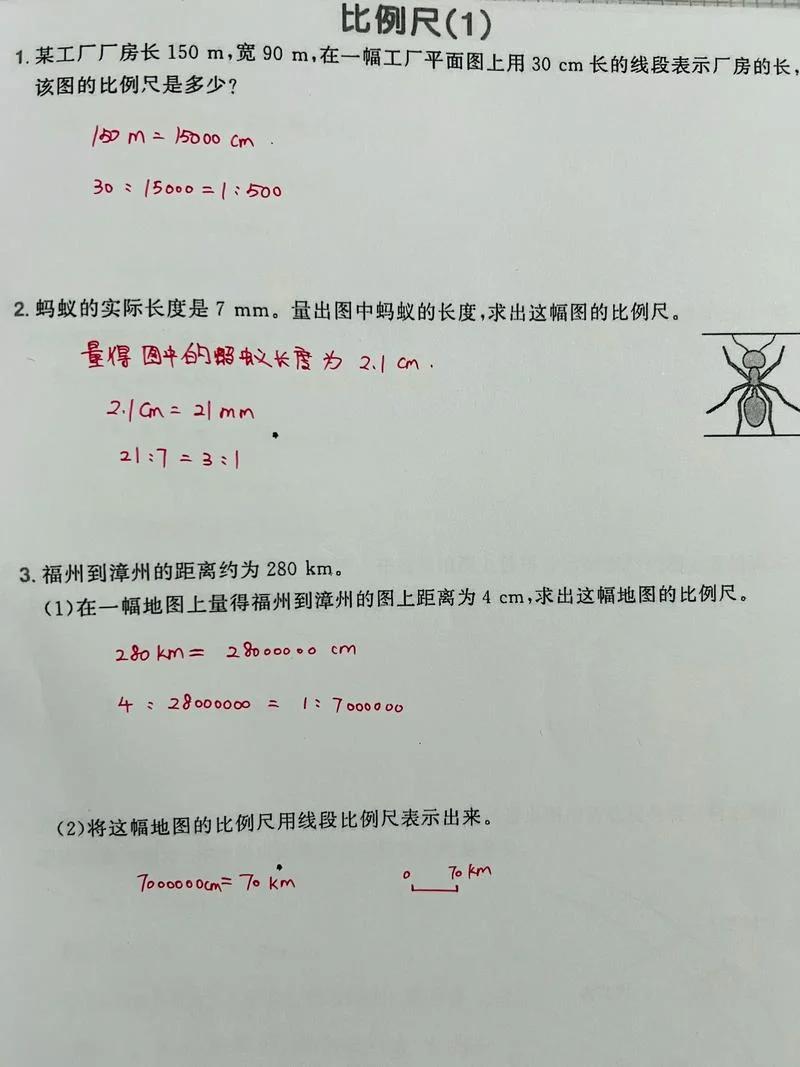 比例尺(1)
1. 某工厂厂房长 150 m,宽 90 m,在一幅工厂平面图上用 30 cm 长的线段表示厂房的长,
该图的比例尺是多少?
150 m = 15000 cm
30 : 15000 = 1 : 500
2. 蚂蚁的实际长度是 7 mm。量出图中蚂蚁的长度,求出这幅图的比例尺。
量得图中的蚂蚁长度为 2.1 cm.
2.1 cm = 21 mm
21 : 7 = 3 : 1
3. 福州到漳州的距离约为 280 km。
(1)在一幅地图上量得福州到漳州的图上距离为 4 cm,求出这幅地图的比例尺。
280 km = 28000000 cm
4 : 28000000 = 1 : 7000000
(2)将这幅地图的比例尺用线段比例尺表示出来。
7000000cm = 70 km
0 70 km